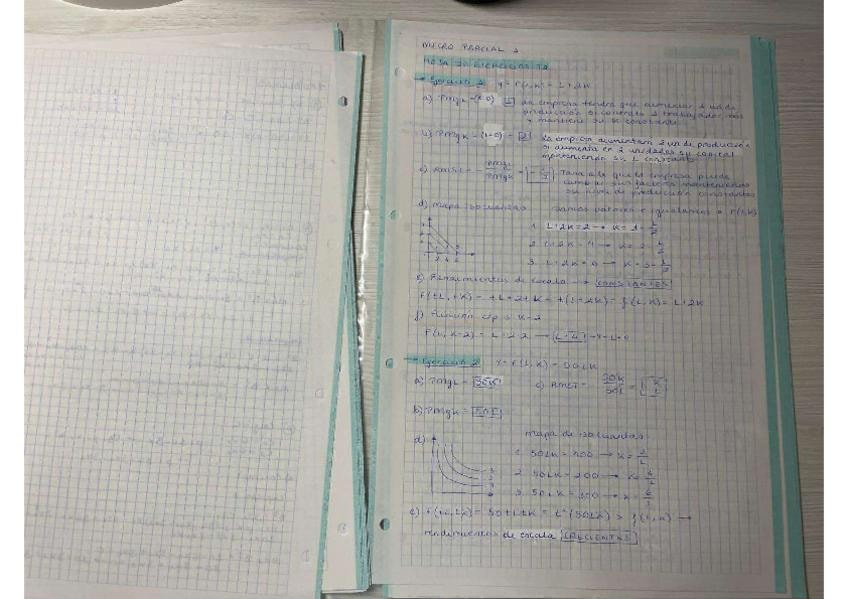 MICRO PARCIAL 2
HOJA DE EJERCICIOS T2
→ Ejercicio 1 Y = F(L,K) = L+2K
a) PMgL = (1+0) = 1 La empresa tendrá que aumentar 1 un de
producción si contrata 1 trabajador más
y mantiene su K constante
b) PMgK = = 2 La empresa aumentará 2 un de producción
si aumenta en 2 unidades su capital
manteniendo su L constante
c) RMST = - PMgL / PMgK = - 1/2 Tasa a la que la empresa puede
cambiar sus factores manteniendo
su nivel de producción constantes
d) Mapa isocuantas Damos valores e igualamos a F(L,K)
1. L+2K = 2 → K = 1 - L/2
2. L+2K = 4 → K = 2 - L/2
3. L+2K = 6 → K = 3 - L/2
e) Rendimientos de escala → CONSTANTES
f(tL, tK) = tL + 2tK = t(L+2K) = f(L,K) = L+2K
f) Función c/p si K=2
F(L, K=2) = L+2·2 → L+4
→ Ejercicio 2 Y = F(L,K) = 50LK
a) PMgL = 50K c) RMST = 50K / 50L = K/L
b) PMgK = 50L
d) mapa de isocuantas
1. 50LK = 100 → K = 2/L
2. 50LK = 200 → K = 4/L
3. 50LK = → K =
e) F(tL, tK) = 50tLtK = t²(50LK) > f(L,K) →
rendimientos de escala CRECIENTES